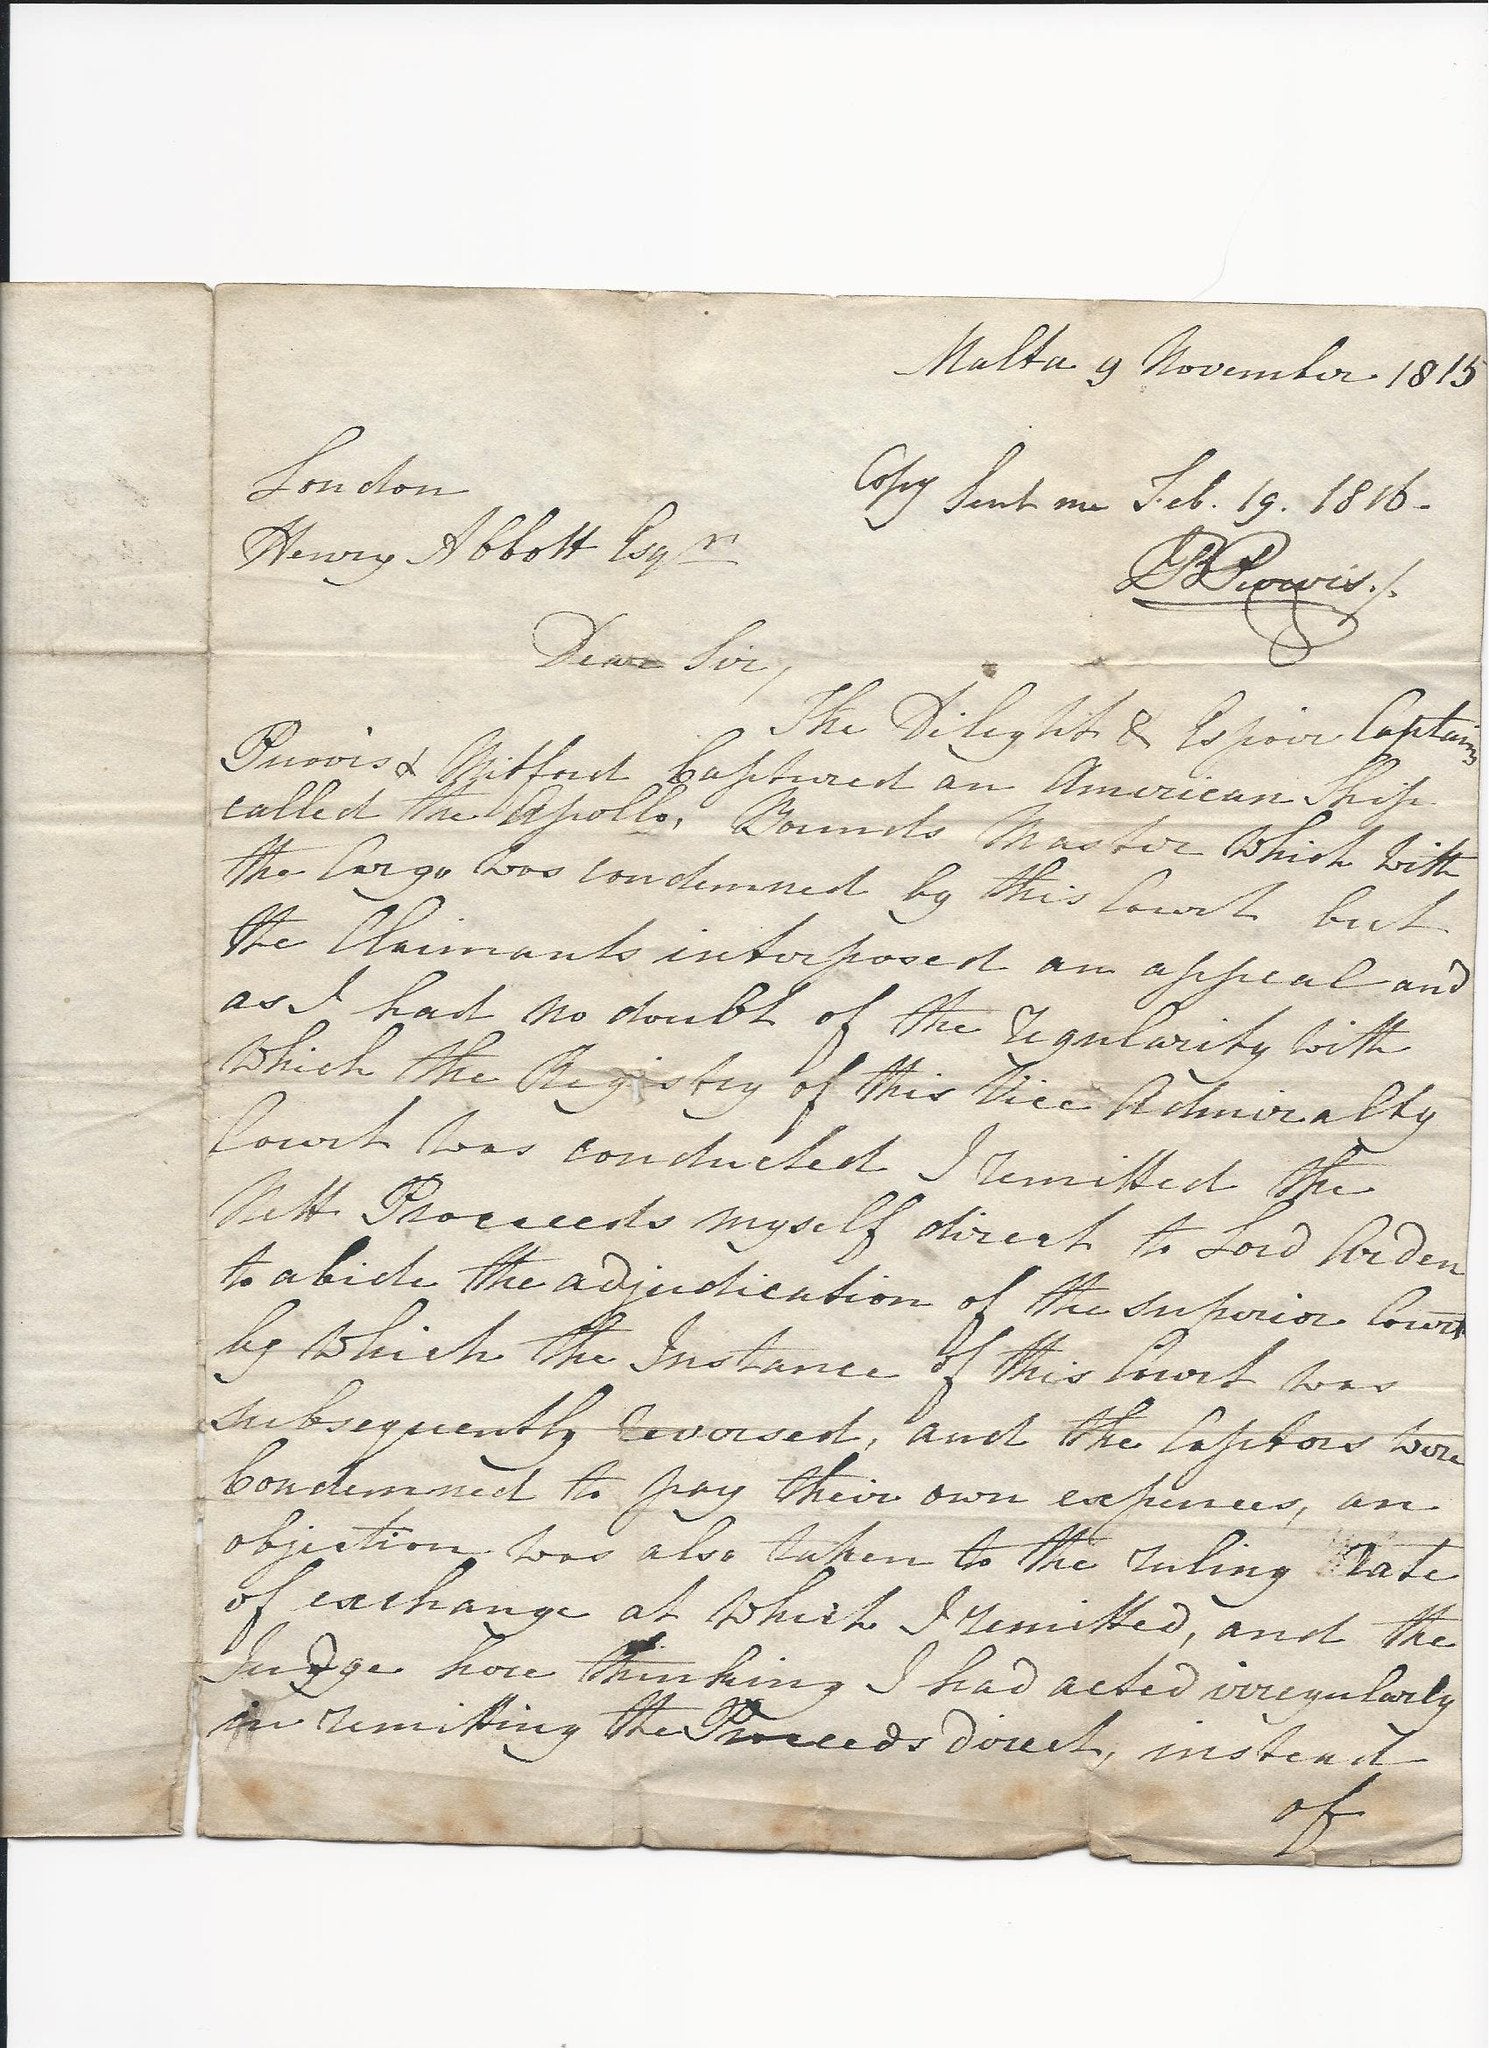 Malta 9 November 1815
Copy Sent me Feb. 19. 1816-
Purvis./.
London
Henry Abbott Esqr
Dear Sir,
The Dileght & Espoir Captains
Purvis & Mitford Captured an American Ship
called the Apollo, Bounds Master which with
the Cargo was condemned by this Court but
the Claimants interposed an appeal and
as I had no doubt of the regularity with
which the Registry of this Vice Admiralty
Court was conducted I remitted the
Nett Proceeds myself direct to Lord Arden
to abide the adjudication of the superior Court
by which the Instance of this Court was
subsequently reversed, and the Captors were
Condemned to pay their own expences, an
objection was also taken to the ruling rate
of exchange at which I remitted, and the
Judge here thinking I had acted irregularly
in remitting the Proceeds direct, instead
of